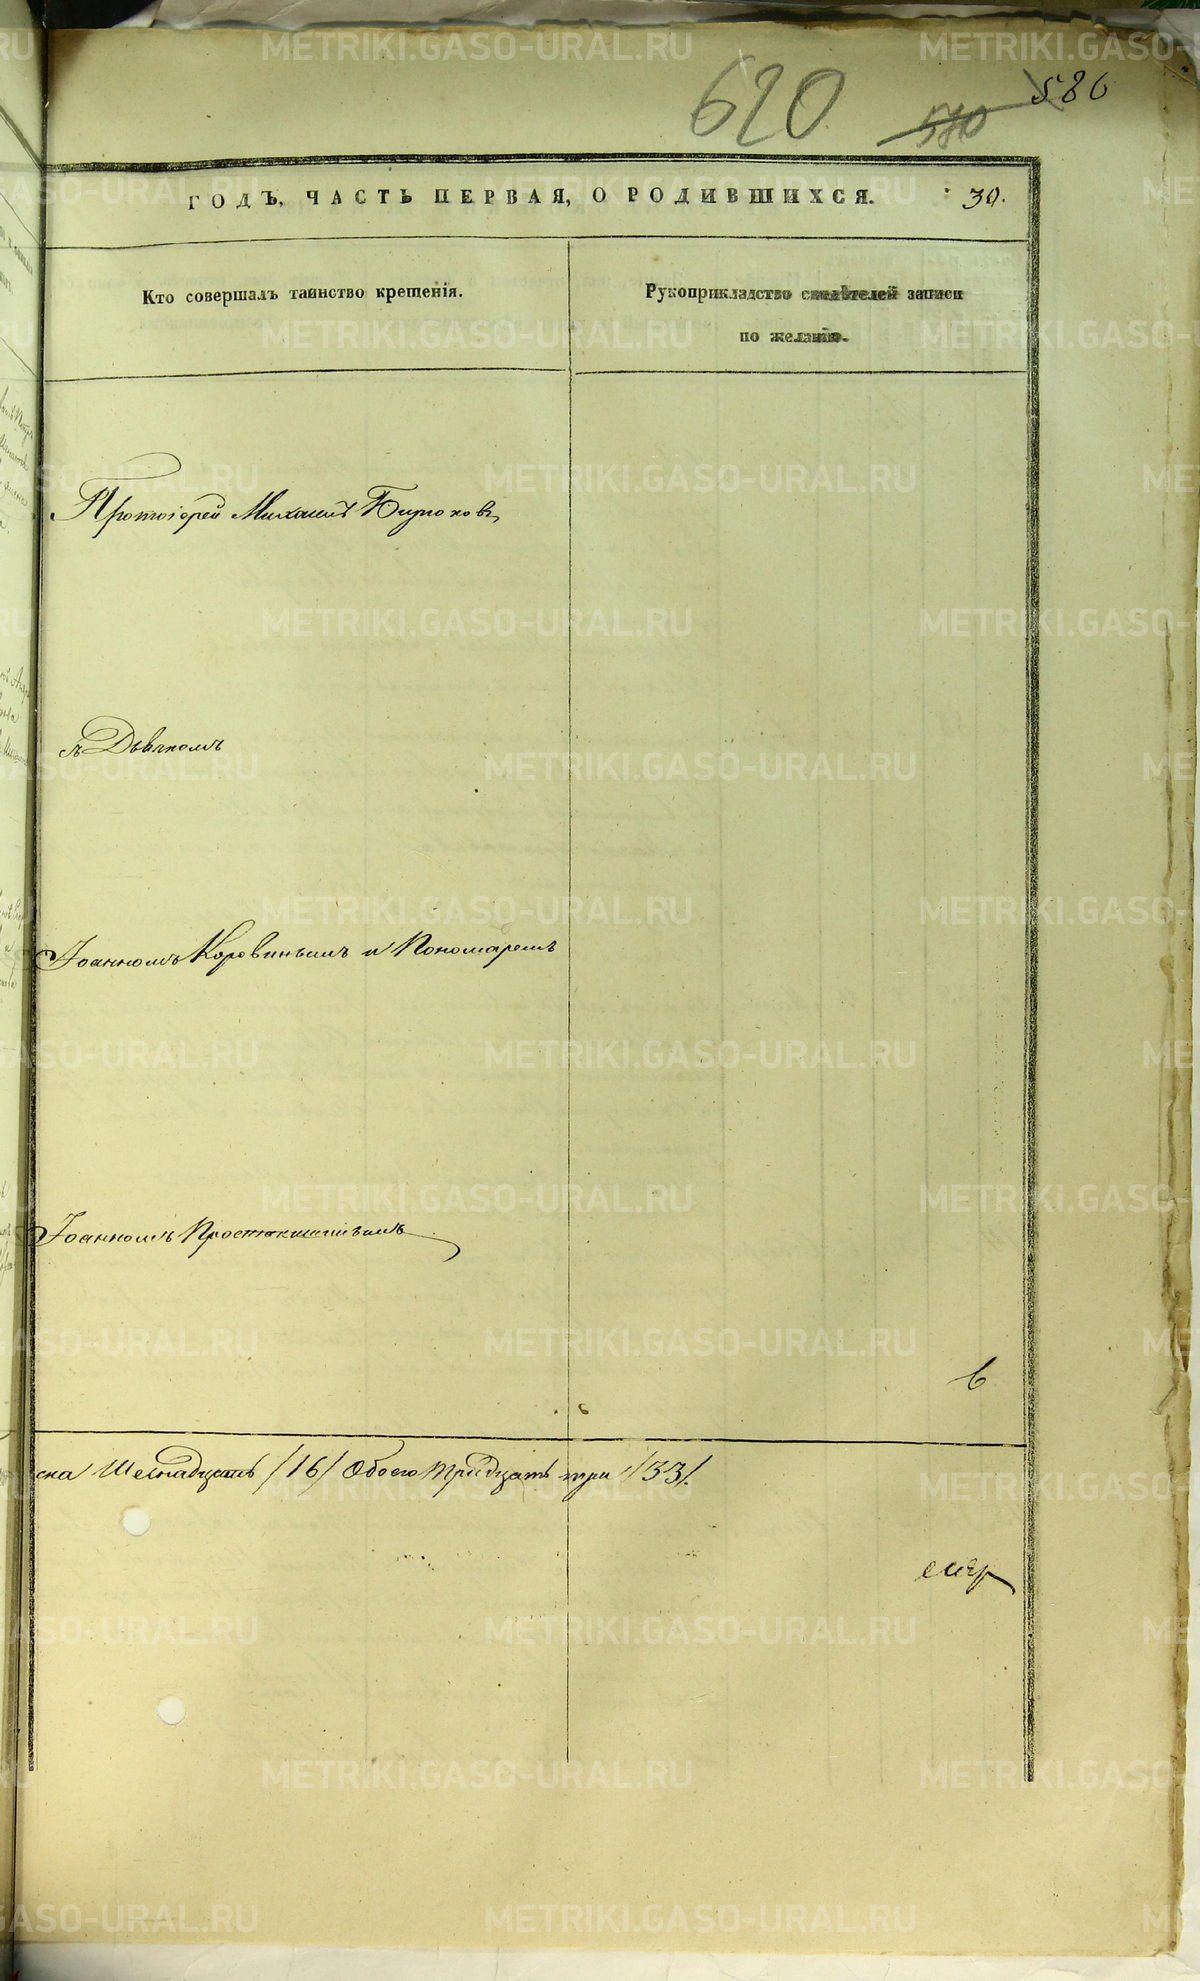 620
580
586
ГОДЪ, ЧАСТЬ ПЕРВАЯ, О РОДИВШИХСЯ.
30.
Кто совершалъ таинство крещенія.
Рукоприкладство свидѣтелей записи
по желанію.
Протоіерей Михаилъ Бирюковъ
съ Дьякономъ
Іоанномъ Коровинымъ и Пономаремъ
Іоанномъ
6
ска Шеснадцать /16/ Обоего тридцать три /33/.
METRIKI.GASO-URAL.RU